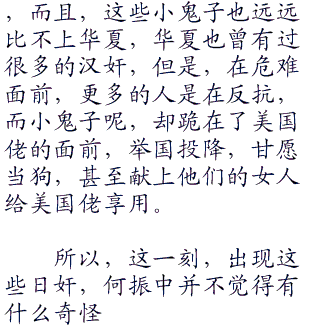 ，而且，这些小鬼子也远远
比不上华夏，华夏也曾有过
很多的汉奸，但是，在危难
面前，更多的人是在反抗，
而小鬼子呢，却跪在了美国
佬的面前，举国投降，甘愿
当狗，甚至献上他们的女人
给美国佬享用。
所以，这一刻，出现这
些日奸，何振中并不觉得有
什么奇怪